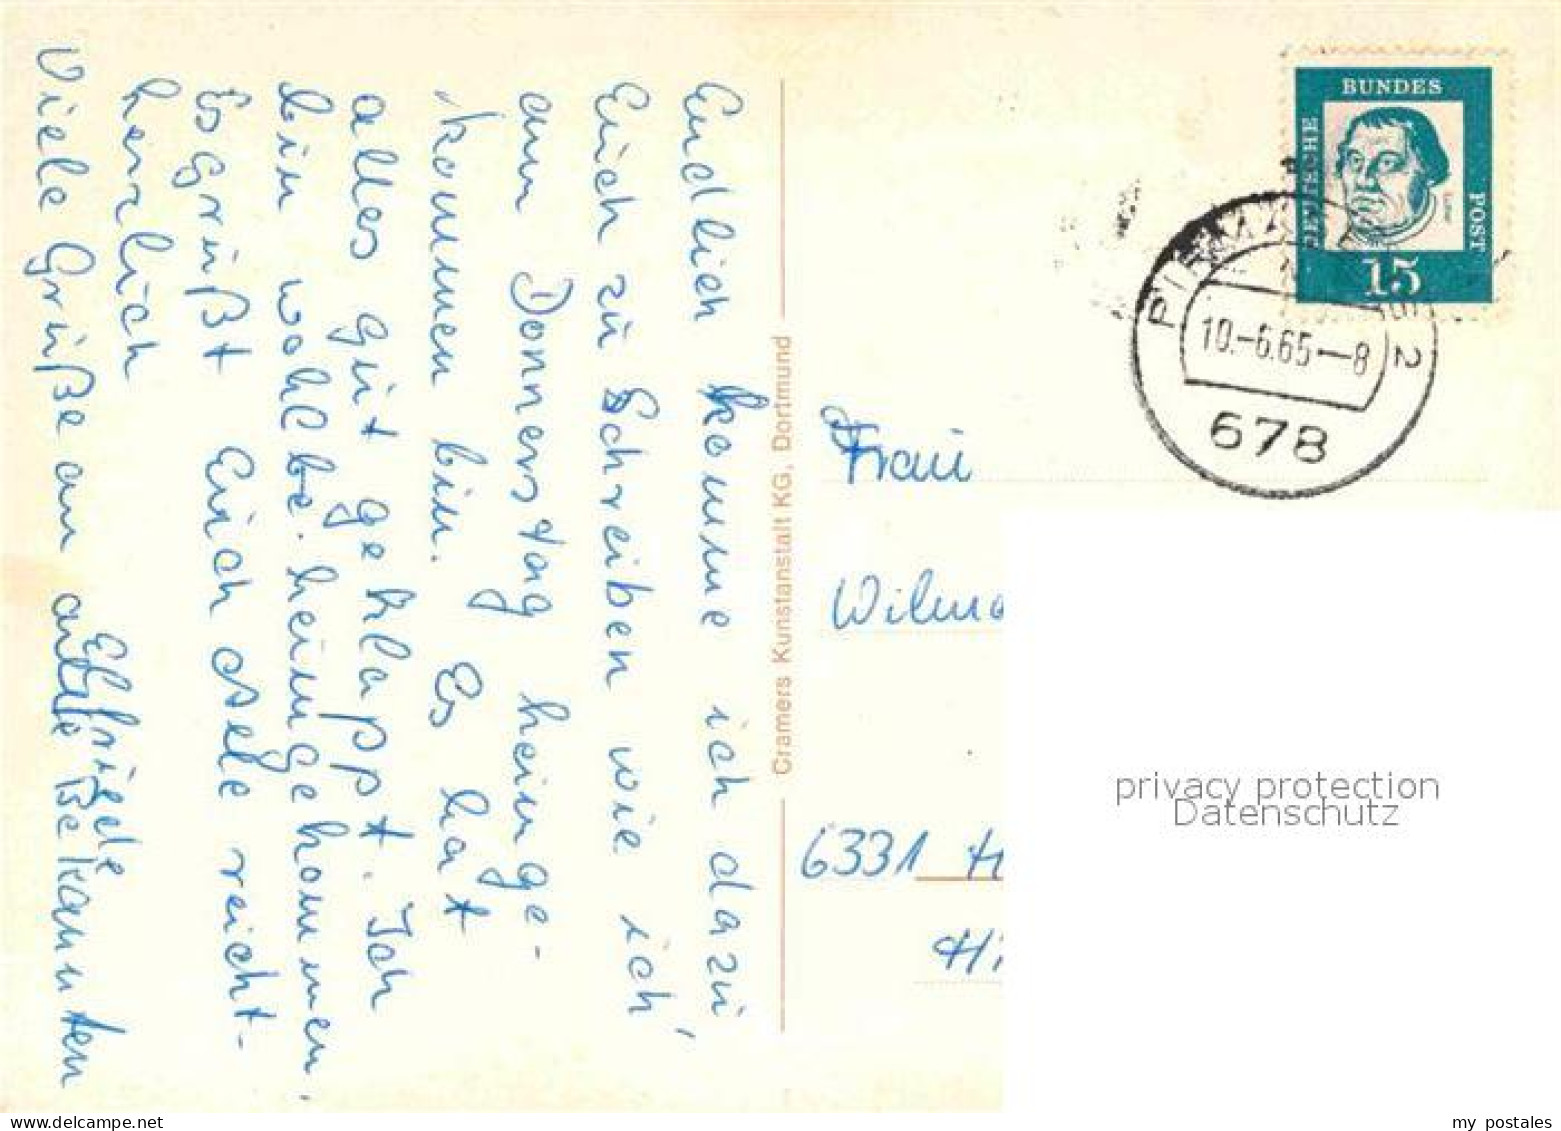 Endlich komme ich dazu
Euch zu Schreiben wie ich
am Donnerstag heimge-
kommen bin. Es hat
alles gut geklappt. Ich
bin wohlbe. heimgekommen.
Es grüßt Euch
herzlich
Elfriede
Viele Grüße an alle Bekannten
Cramers Kunstanstalt KG, Dortmund
DEUTSCHE
BUNDES
POST
Luther
15
10.-6.65-8
2
678
Frau
6331 H
Hi
privacy protection
Datenschutz
www.delcampe.net
my postales